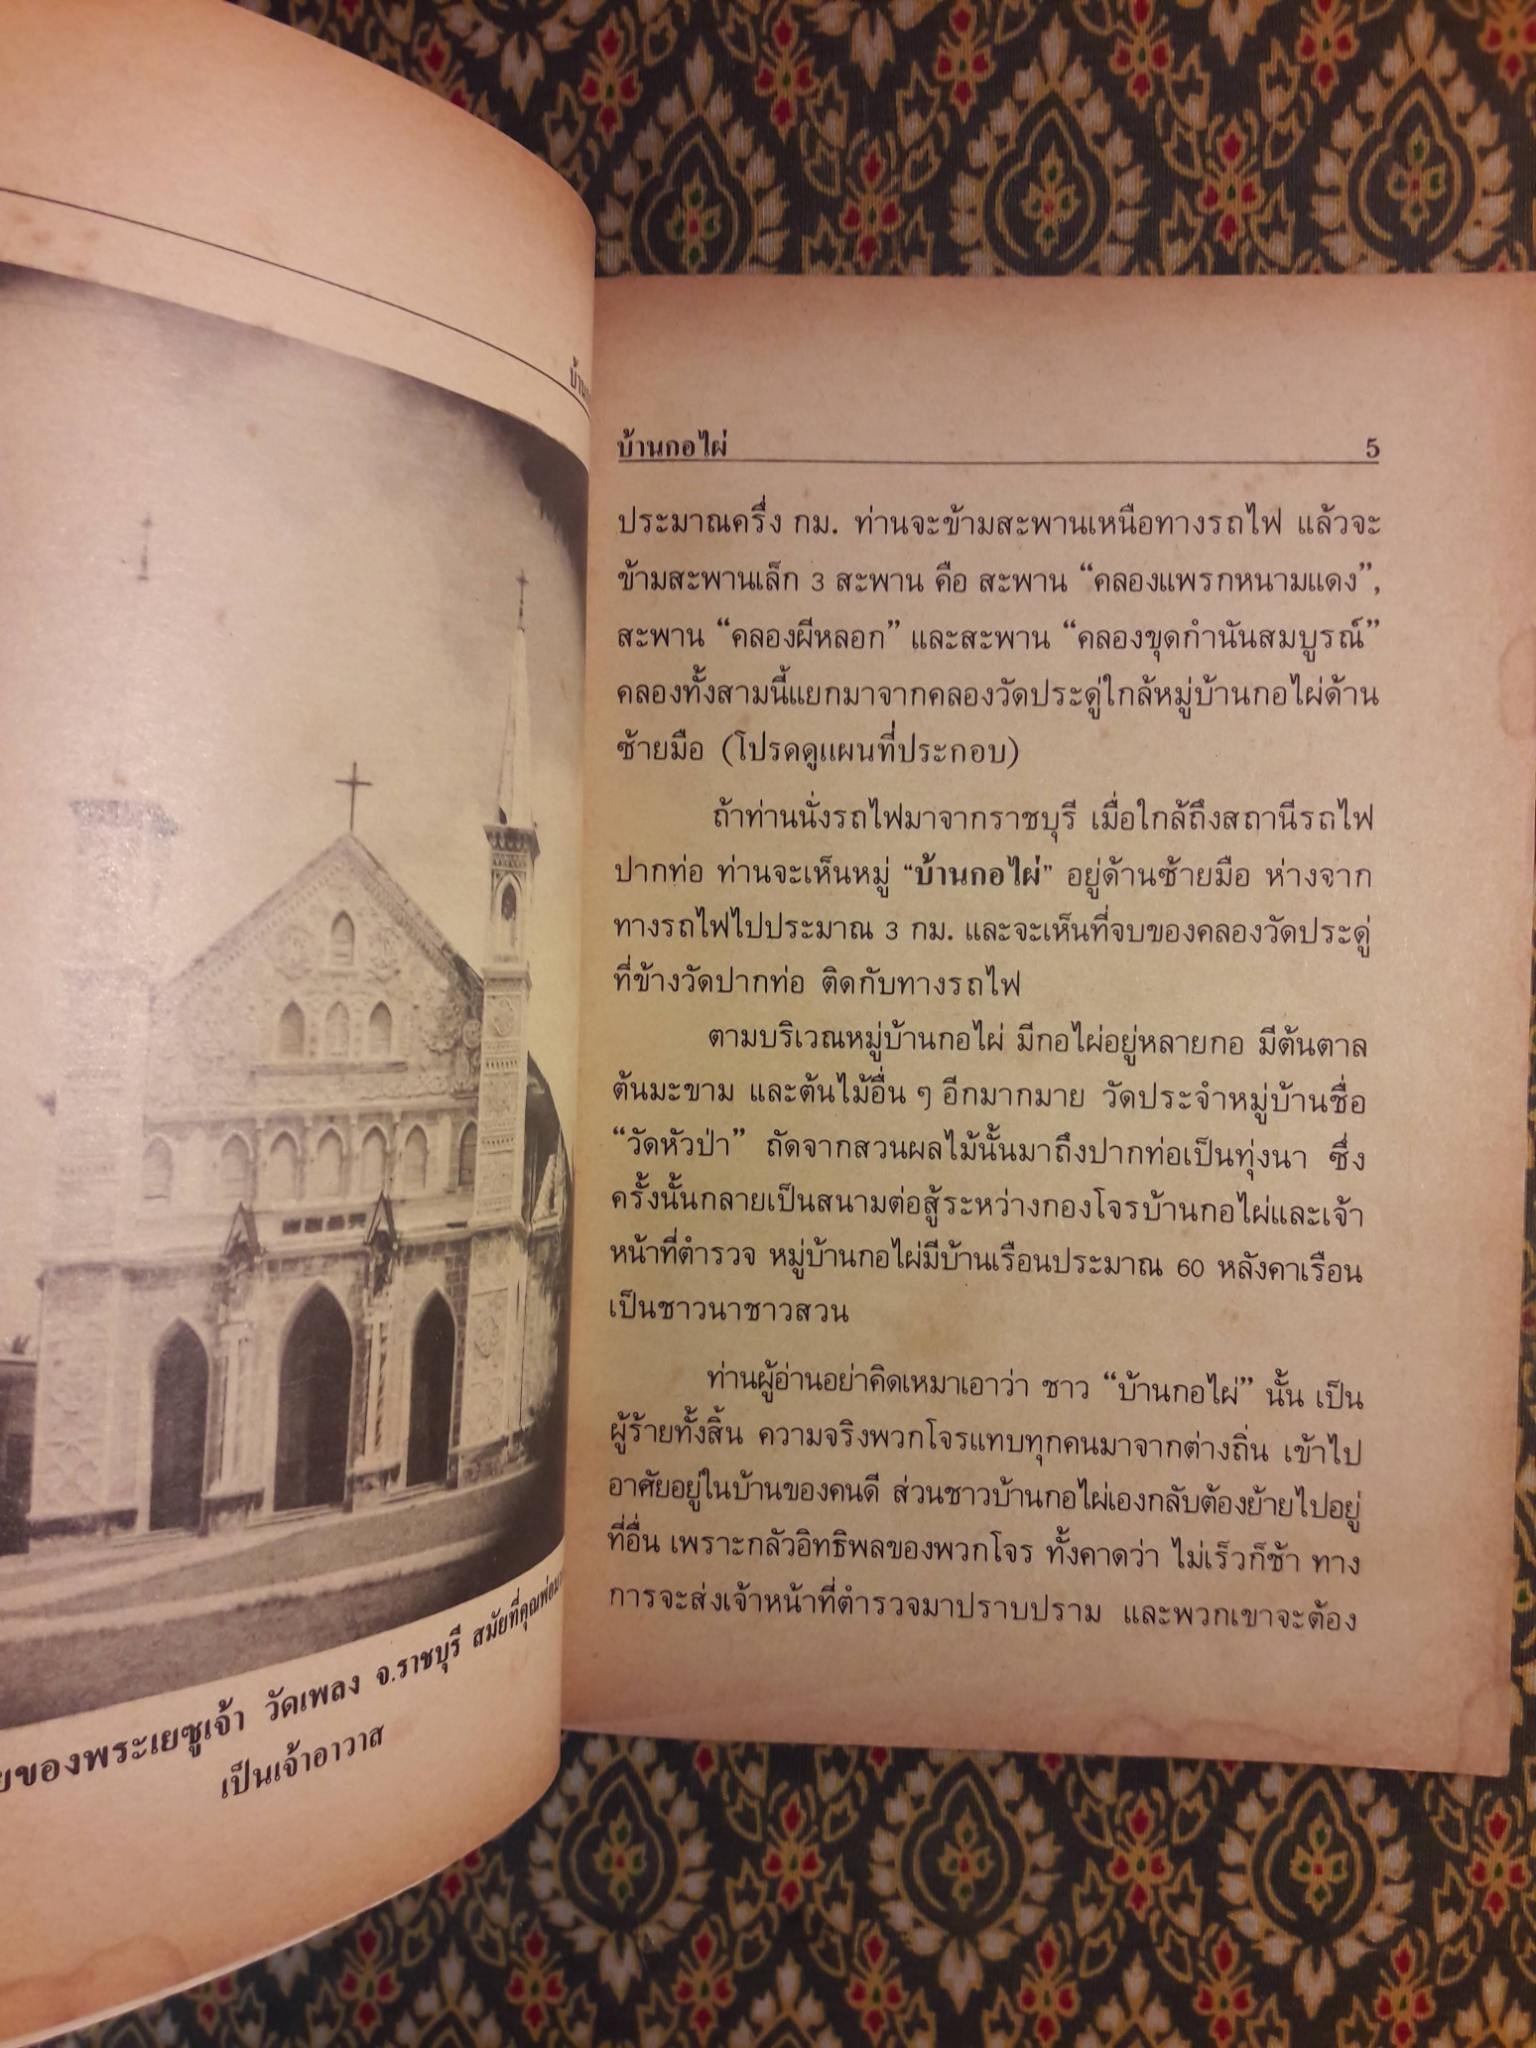 ของพระเยซูเจ้า วัดเพลง จ.ราชบุรี สมัยที่คุณพ่อ
เป็นเจ้าอาวาส
บ้านกอไผ่ 5
ประมาณครึ่ง กม. ท่านจะข้ามสะพานเหนือทางรถไฟ แล้วจะ
ข้ามสะพานเล็ก 3 สะพาน คือ สะพาน “คลองแพรกหนามแดง”,
สะพาน “คลองผีหลอก” และสะพาน “คลองขุดกำนันสมบูรณ์”
คลองทั้งสามนี้แยกมาจากคลองวัดประดู่ใกล้หมู่บ้านกอไผ่ด้าน
ซ้ายมือ (โปรดดูแผนที่ประกอบ)
ถ้าท่านนั่งรถไฟมาจากราชบุรี เมื่อใกล้ถึงสถานีรถไฟ
ปากท่อ ท่านจะเห็นหมู่ “บ้านกอไผ่” อยู่ด้านซ้ายมือ ห่างจาก
ทางรถไฟไปประมาณ 3 กม. และจะเห็นที่จบของคลองวัดประดู่
ที่ข้างวัดปากท่อ ติดกับทางรถไฟ
ตามบริเวณหมู่บ้านกอไผ่ มีกอไผ่อยู่หลายกอ มีต้นตาล
ต้นมะขาม และต้นไม้อื่น ๆ อีกมากมาย วัดประจำหมู่บ้านชื่อ
“วัดหัวป่า” ถัดจากสวนผลไม้นั้นมาถึงปากท่อเป็นทุ่งนา ซึ่ง
ครั้งนั้นกลายเป็นสนามต่อสู้ระหว่างกองโจรบ้านกอไผ่และเจ้า
หน้าที่ตำรวจ หมู่บ้านกอไผ่มีบ้านเรือนประมาณ 60 หลังคาเรือน
เป็นชาวนาชาวสวน
ท่านผู้อ่านอย่าคิดเหมาเอาว่า ชาว “บ้านกอไผ่” นั้น เป็น
ผู้ร้ายทั้งสิ้น ความจริงพวกโจรแทบทุกคนมาจากต่างถิ่น เข้าไป
อาศัยอยู่ในบ้านของคนดี ส่วนชาวบ้านกอไผ่เองกลับต้องย้ายไปอยู่
ที่อื่น เพราะกลัวอิทธิพลของพวกโจร ทั้งคาดว่า ไม่เร็วก็ช้า ทาง
การจะส่งเจ้าหน้าที่ตำรวจมาปราบปราม และพวกเขาจะต้อง